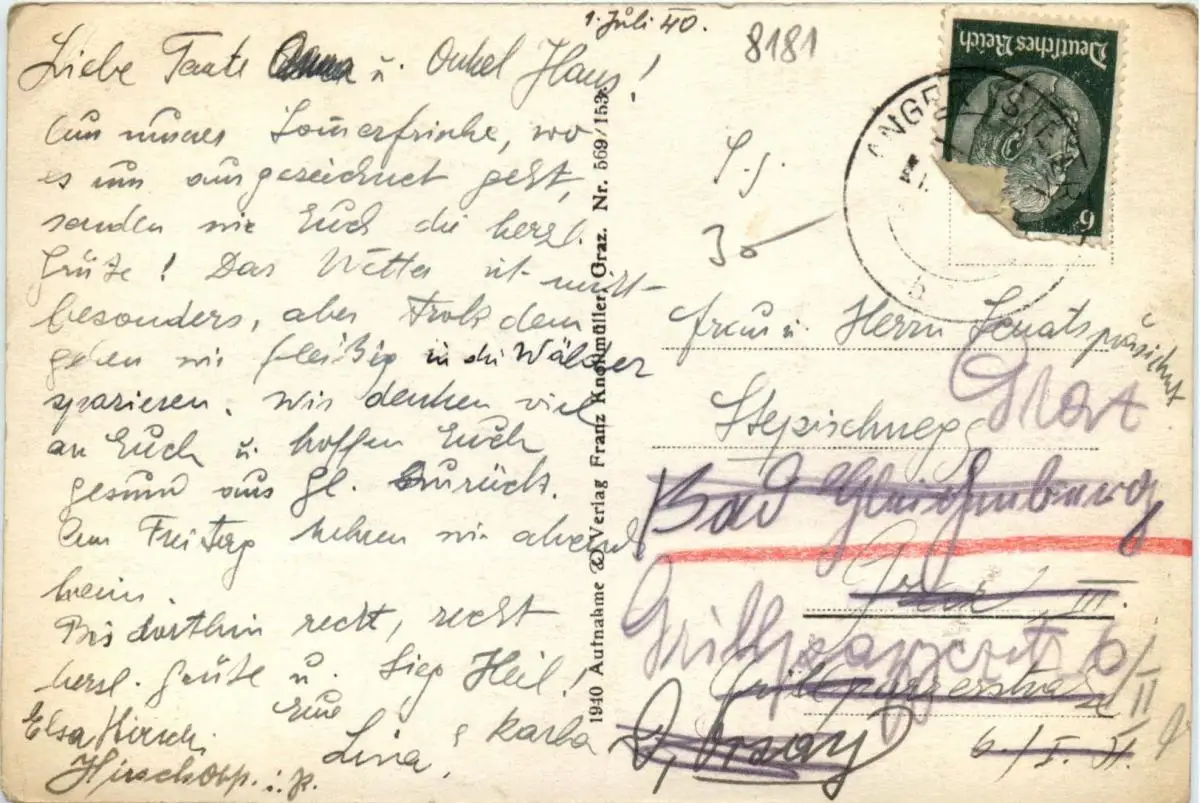 1. Juli 40.
Liebe Tante Anna u. Onkel Hans!
Aus unserer Sommerfrische, wo
es uns ausgezeichnet geht,
senden wir Euch die herzl.
Grüße! Das Wetter ist nicht
besonders, aber trotzdem
gehen wir fleißig in die Wälder
spazieren. Wir denken viel
an Euch u. hoffen Euch
gesund aus Gl. zurück.
Am Freitag kehren wir abends
heim.
Bis dorthin recht, recht
herzl. Grüße u. Sieg Heil!
Eure
Lina, Karla
Elsa Hirsch
1940 Aufnahme & Verlag Franz Knollmüller, Graz. Nr. 569/153
8181
30
Deutsches Reich
6
ANGER (STEIERM
b
Frau u. Herrn Senatspräsident
Stepischnegg
Graz
Bad Gleichenberg
Graz III.
Grillparzerstr 6/II
Grillparzerstraße
6./I. St.